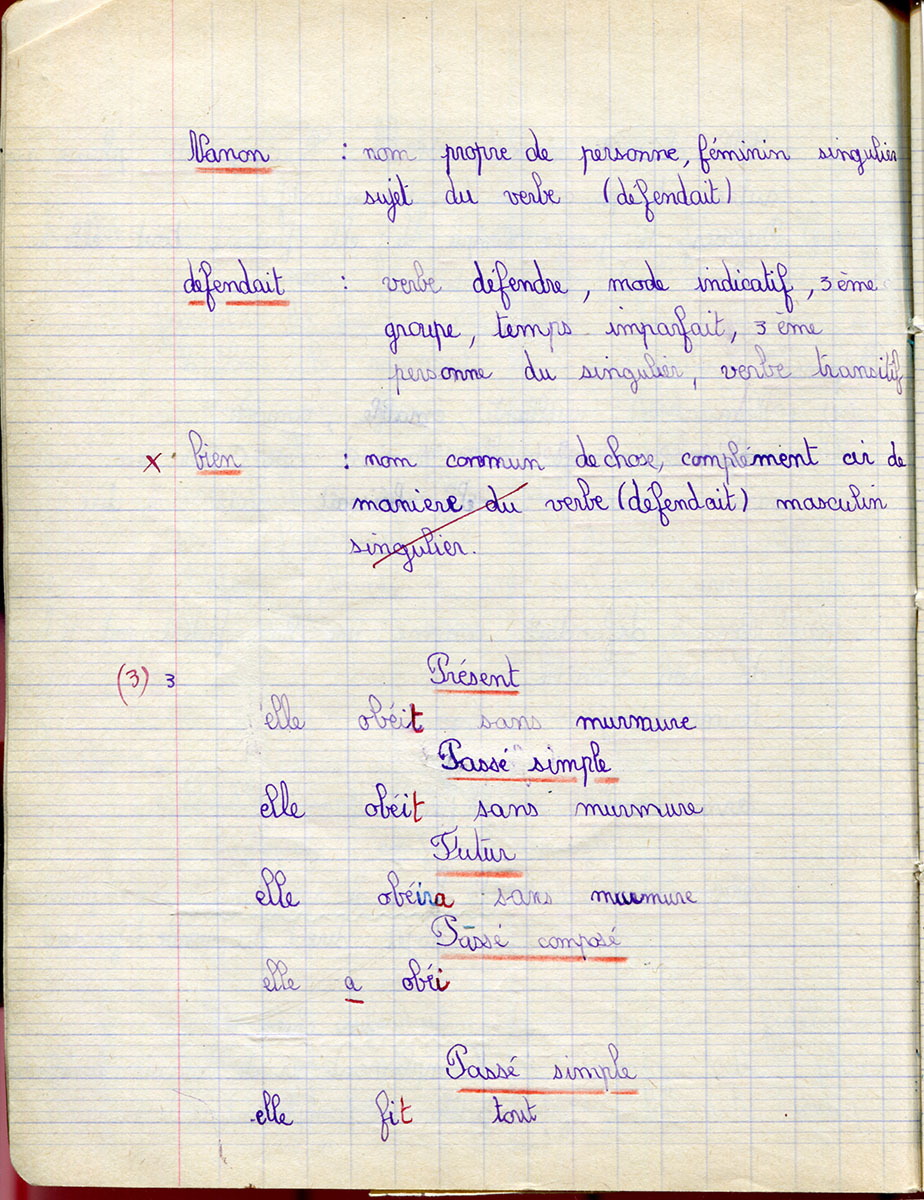 Nanon : nom propre de personne, féminin singulier
sujet du verbe (défendait)
défendait : verbe défendre, mode indicatif, 3ème
groupe, temps imparfait, 3ème
personne du singulier, verbe transitif
x bien : nom commun de chose, complément cir de
manière du verbe (défendait) masculin
singulier.
(3) 3 Présent
elle obéit sans murmure
Passé simple
elle obéit sans murmure
Futur
elle obéira sans murmure
Passé composé
elle a obéi
Passé simple
elle fit tout